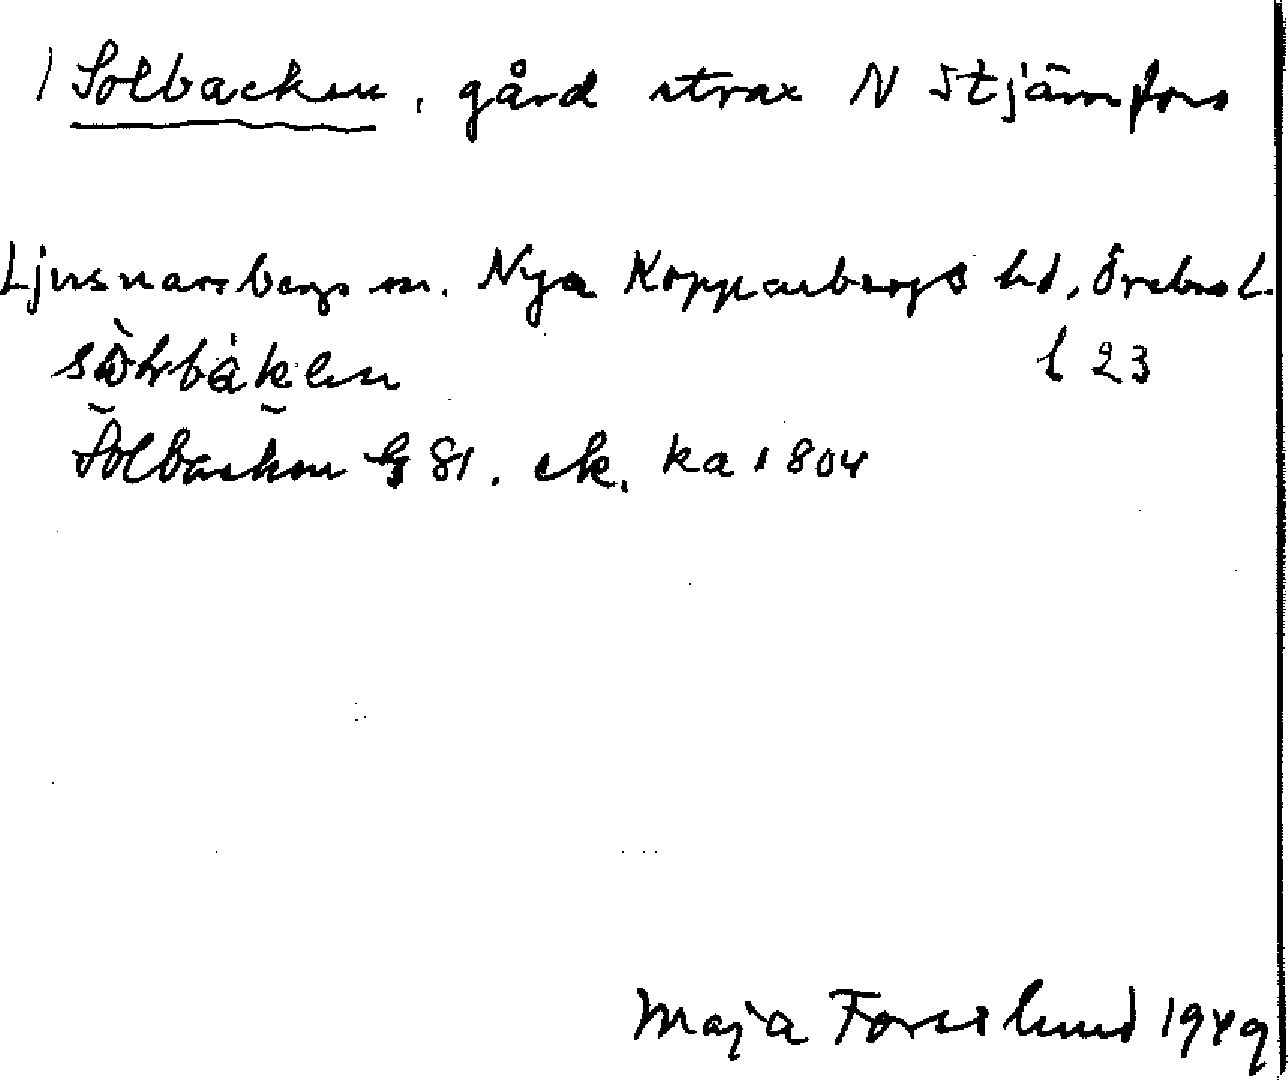 1) Solbacken, gård strax N Stjärnfors
Ljusnarsbergs sn. Nya Kopparbergs hd, Örebro l.
l 23
Solbacken G 81. ek. ka 1804
Maja Forslund 1949